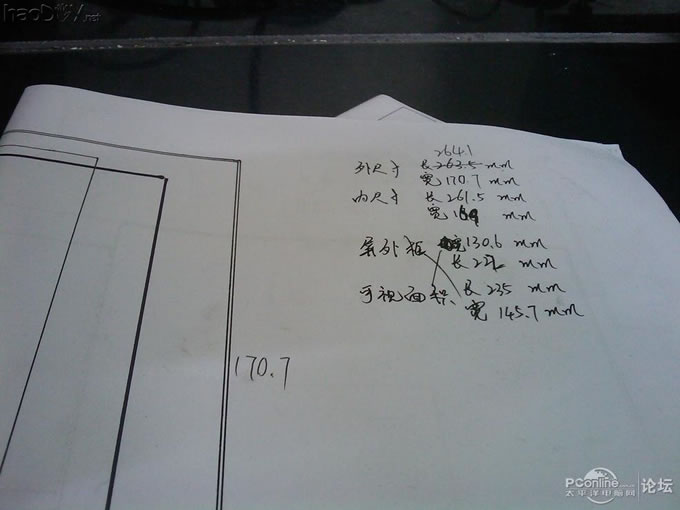 haoDIY.net
264.1
外尺寸 长263.5mm
宽170.7mm
内尺寸 长261.5mm
宽169 mm
屏外框 宽130.6mm
长222 mm
可视面积 长235 mm
宽 145.7mm
170.7
PConline
太平洋电脑网 论坛